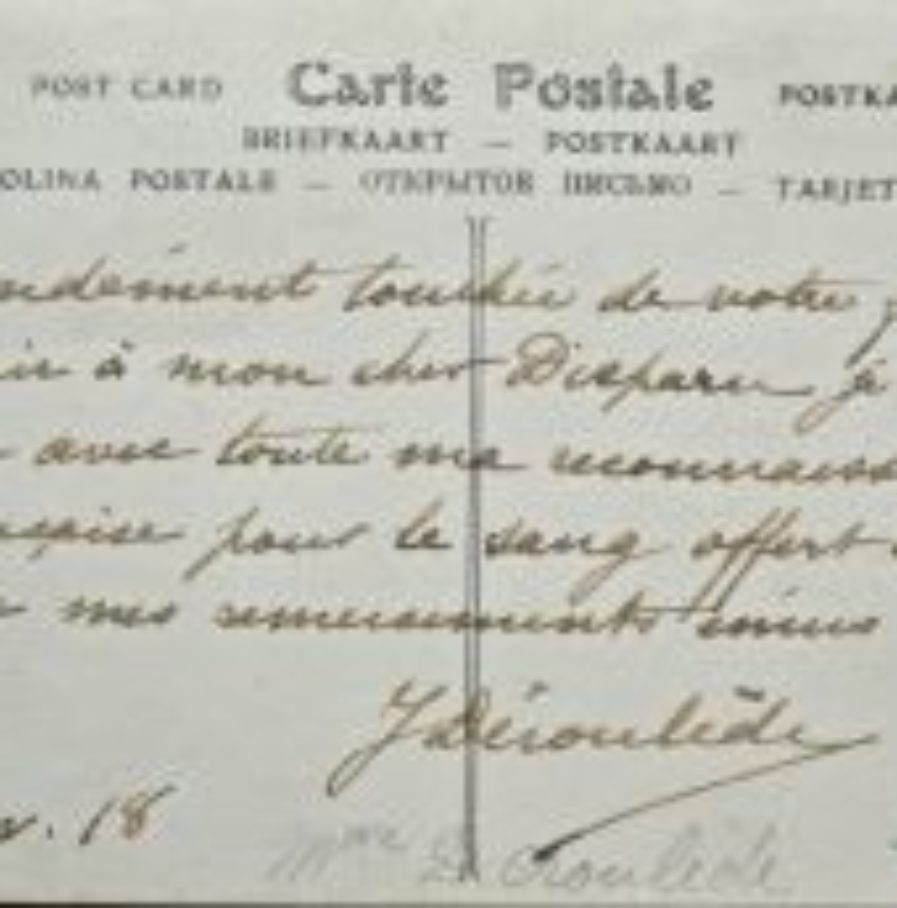 POST CARD Carte Postale POSTKA
BRIEFKAART — POSTKAART
OLINA POSTALE — ОТКРЫТОЕ ПИСЬМО — TARJET
ndément touchée de votre
ir à mon cher Disparu je
avec toute ma reconnaiss
pour le sang offert
mes remerciements émus
J Déroulède
v. 18
Mme Déroulède